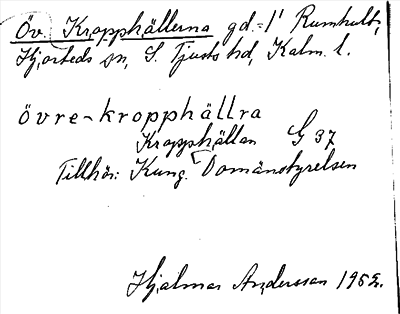 Öv. Kropphällerna gd. i Rumhult,
Hjorteds sn, S. Tjusts hd, Kalm. l.
övre-kropphällra
Kropphällan G 37
Tillhör: Kung. Domänstyrelsen
Hjalmar Andersson 1952.